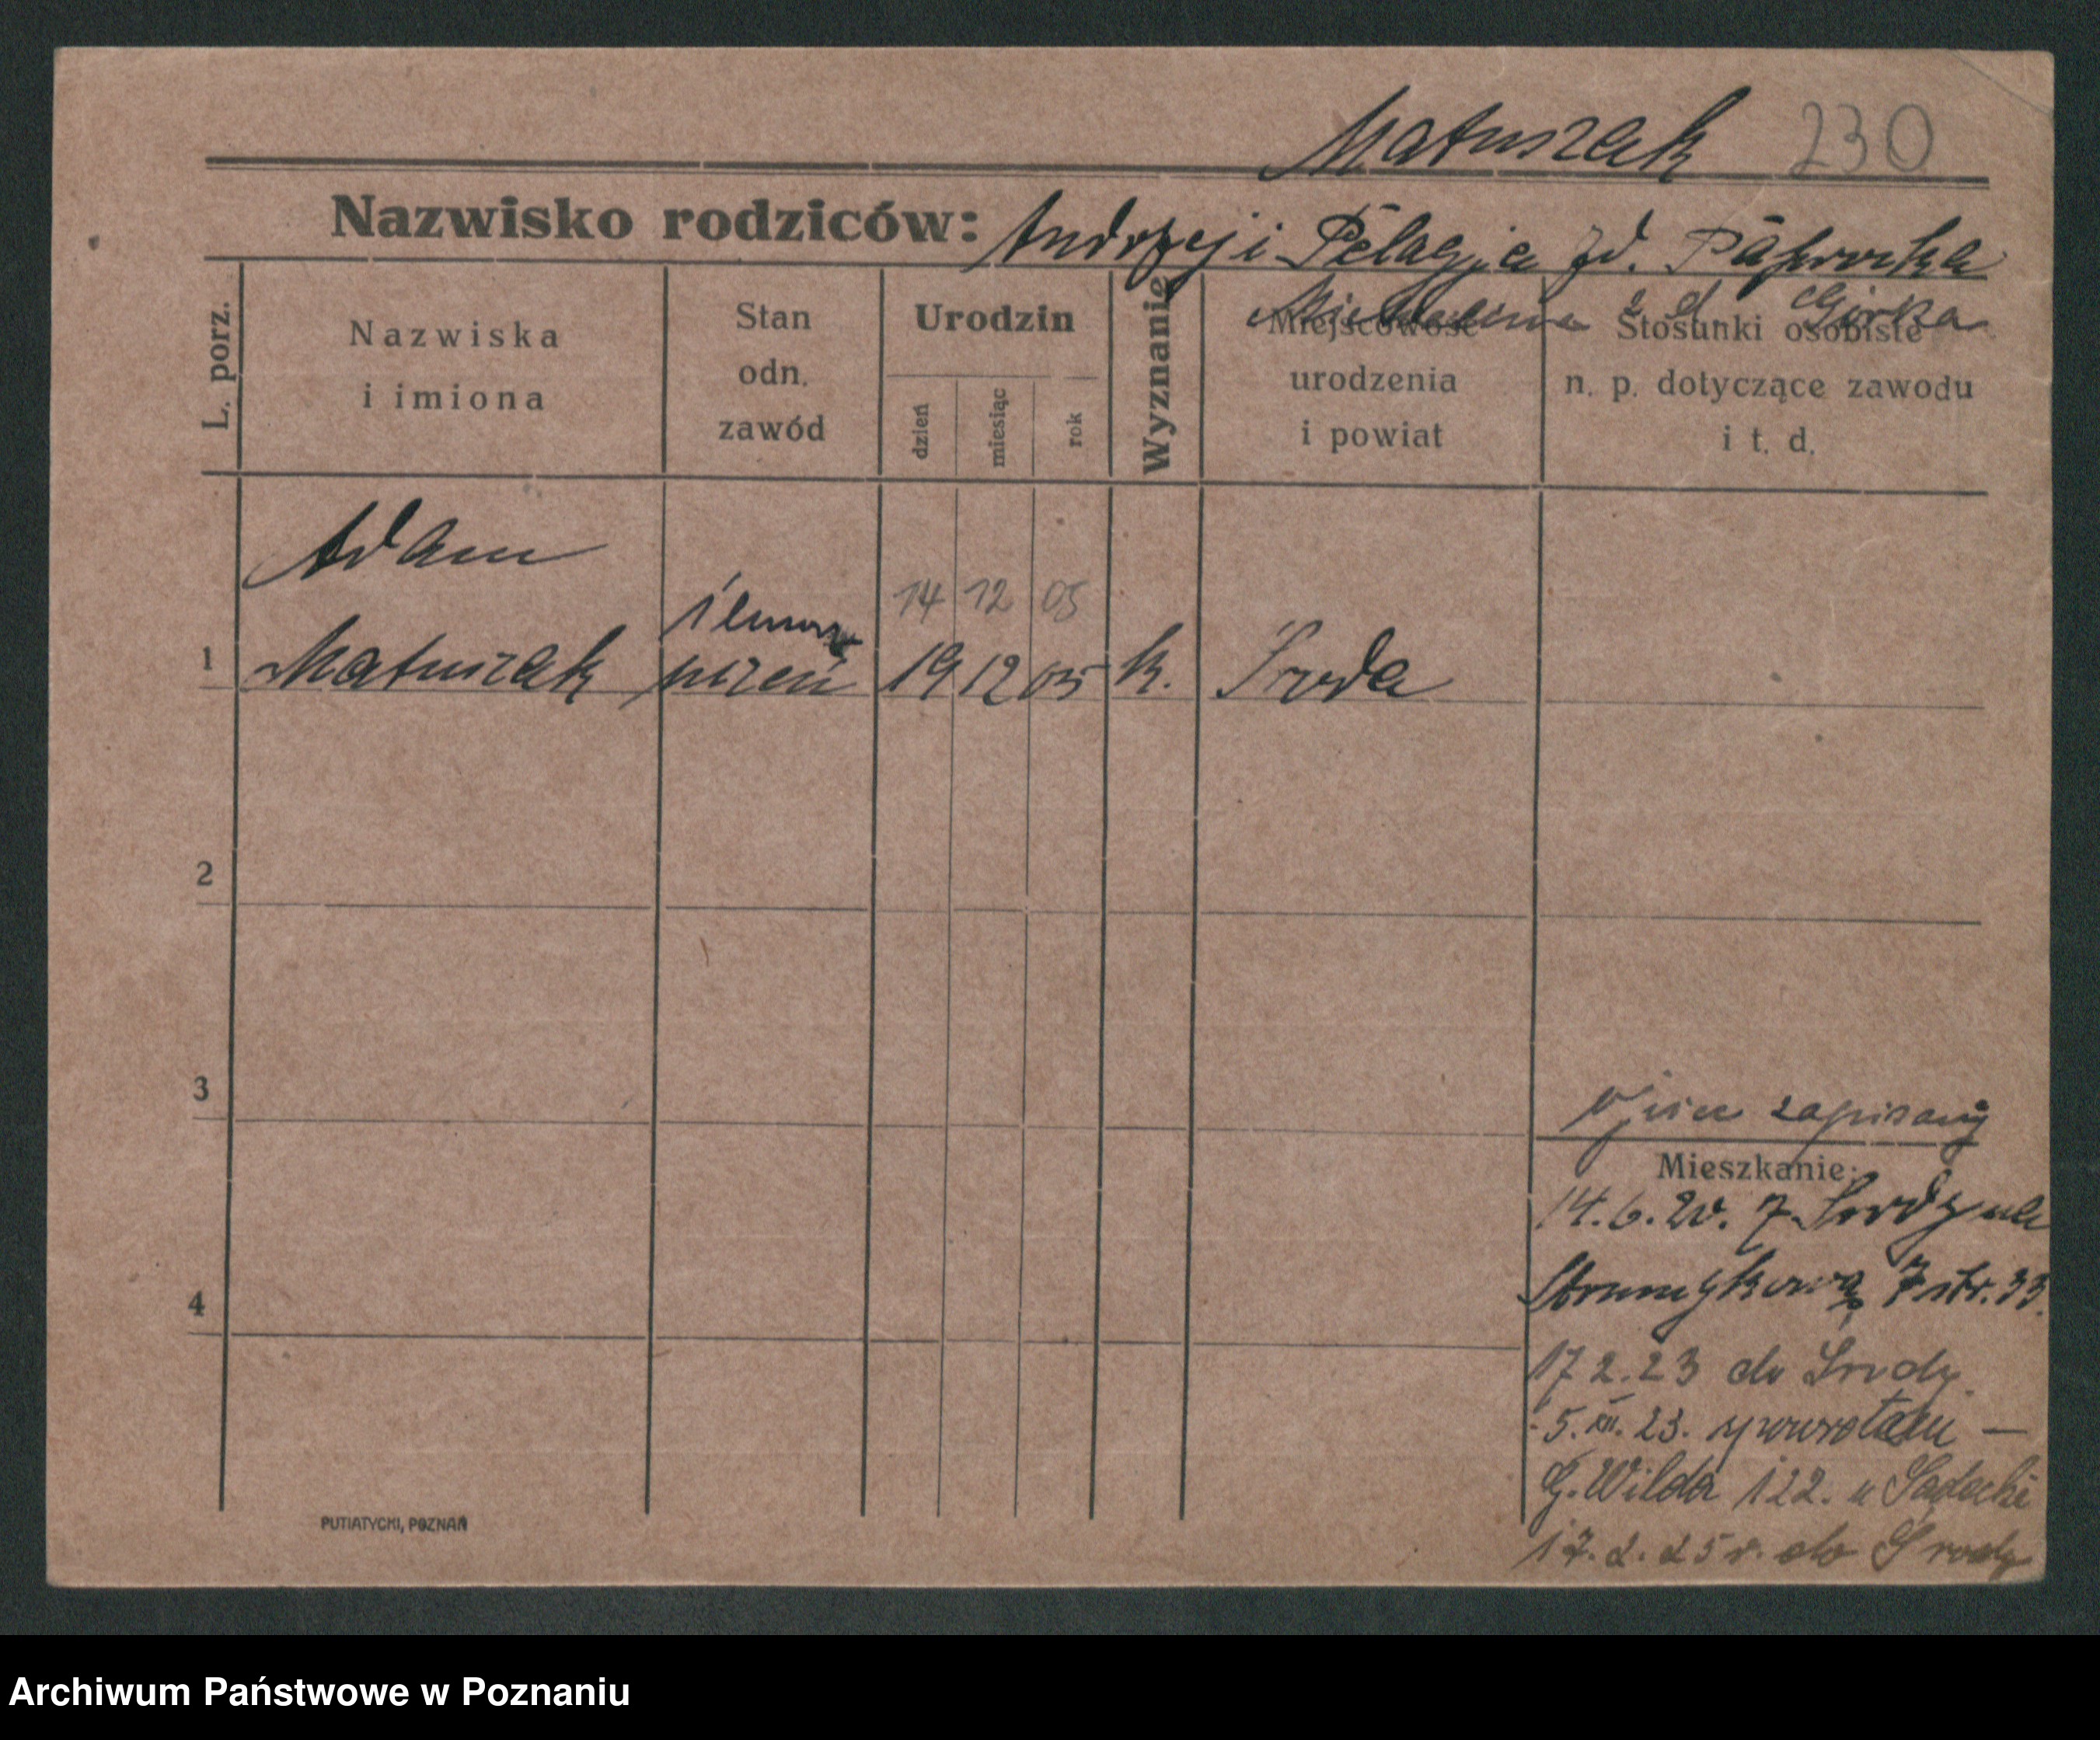 Matuszak 230
Nazwisko rodziców: Andrzej i Pelagja zd.
zd. Górska
L. porz.
Nazwiska
i imiona
Stan
odn.
zawód
Urodzin
dzień
miesiąc
rok
Wyznanie
Miejscowość
urodzenia
i powiat
Stosunki osobiste
n. p. dotyczące zawodu
i t. d.
Adam
14 12 05
1 Matuszak uczeń 19 12 05 k. Środa
2
3
4
zapisany
Mieszkanie:
14.6.20. z Środy na
Strumykową 33.
17 2.23 do Środy.
5. XII. 23. z powrotem —
G. Wilda 122. u Sądecki
17. 2. 25 r. do Środy
PUTIATYCKI, POZNAŃ
Archiwum Państwowe w Poznaniu